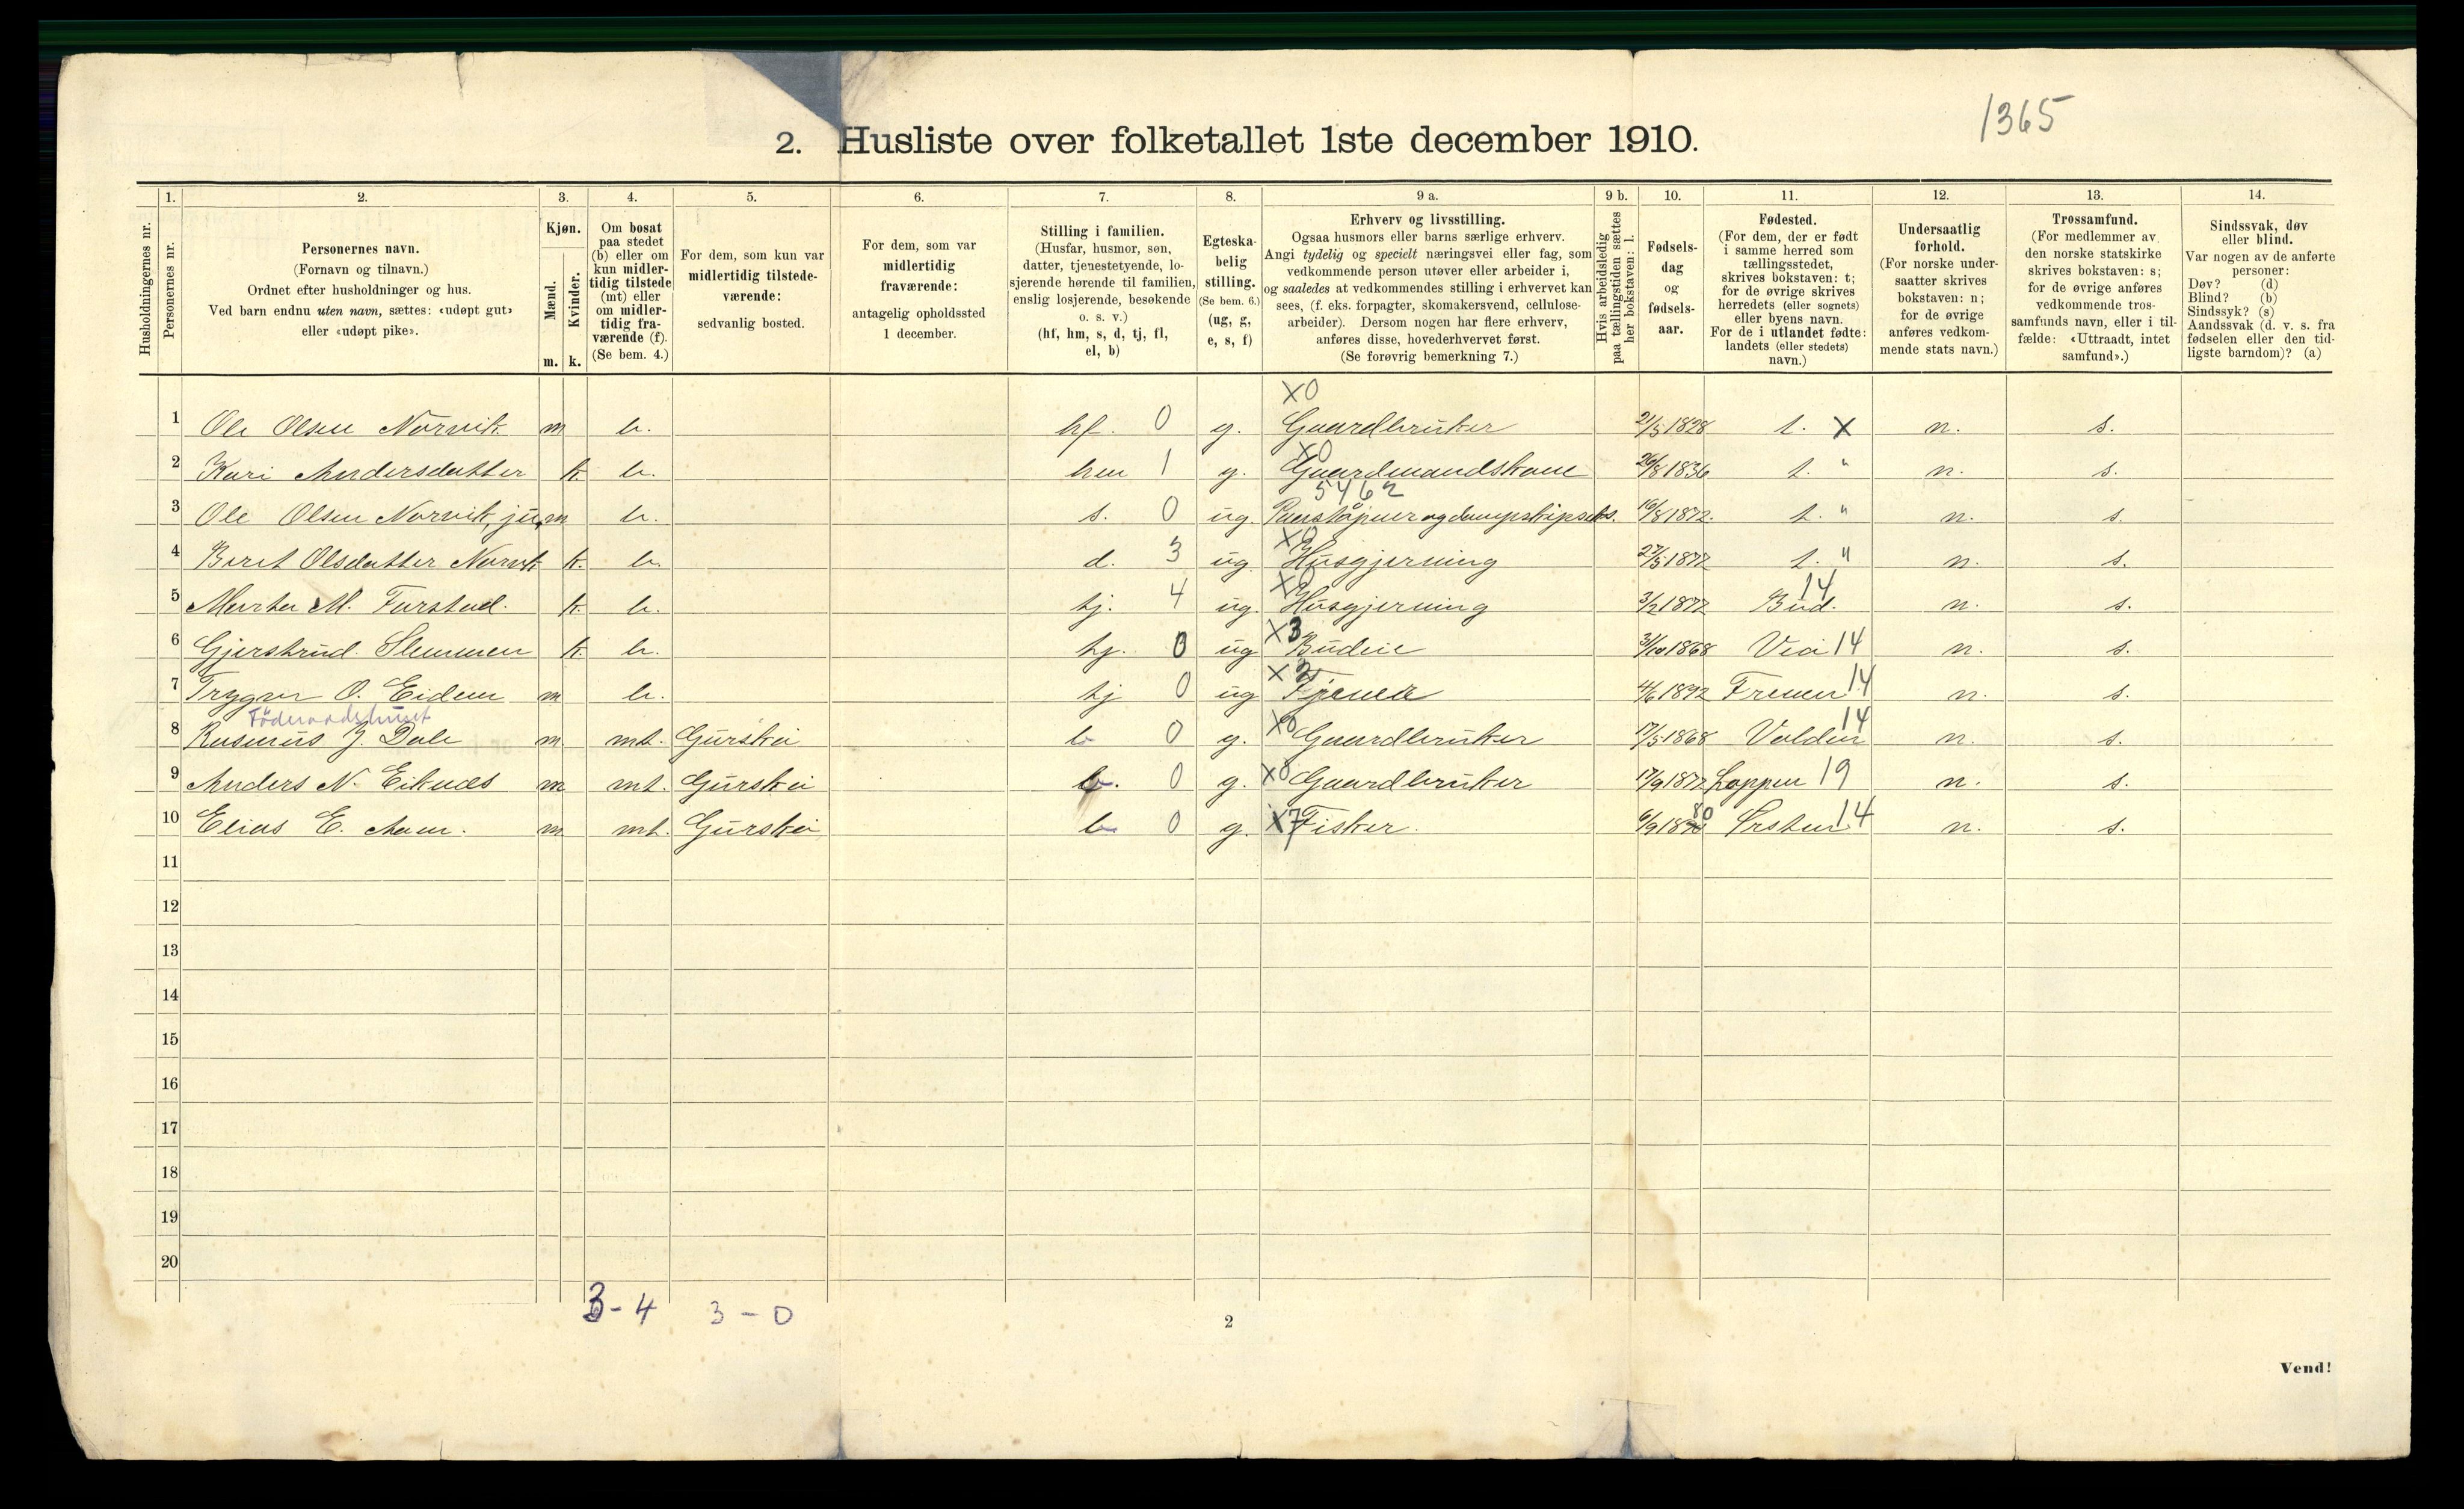 1365
2. Husliste over folketallet 1ste december 1910.
1. 2. 3. 4. 5. 6. 7. 8. 9 a. 9 b. 10. 11. 12. 13. 14.
Husholdningernes nr.
Personernes nr.
Personernes navn.
(Fornavn og tilnavn.)
Ordnet efter husholdninger og hus.
Ved barn endnu uten navn, sættes: «udøpt gut»
eller «udøpt pike».
Kjøn.
Mænd.
Kvinder.
m. k.
Om bosat
paa stedet
(b) eller om
kun midler-
tidig tilstede
(mt) eller
om midler-
tidig fra-
værende (f).
(Se bem. 4.)
For dem, som kun var
midlertidig tilstede-
værende:
sedvanlig bosted.
For dem, som var
midlertidig
fraværende:
antagelig opholdssted
1 december.
Stilling i familien.
(Husfar, husmor, søn,
datter, tjenestetyende, lo-
sjerende hørende til familien,
enslig losjerende, besøkende
o. s. v.)
(hf, hm, s, d, tj, fl,
el, b)
Egteska-
belig
stilling.
(Se bem. 6.)
(ug, g,
e, s, f)
Erhverv og livsstilling.
Ogsaa husmors eller barns særlige erhverv.
Angi tydelig og specielt næringsvei eller fag, som
vedkommende person utøver eller arbeider i,
og saaledes at vedkommendes stilling i erhvervet kan
sees, (f. eks. forpagter, skomakersvend, cellulose-
arbeider). Dersom nogen har flere erhverv,
anføres disse, hovederhvervet først.
(Se forøvrig bemerkning 7.)
Hvis arbeidsledig
paa tællingstiden sættes
her bokstaven: l.
Fødsels-
dag
og
fødsels-
aar.
Fødested.
(For dem, der er født
i samme herred som
tællingsstedet,
skrives bokstaven: t;
for de øvrige skrives
herredets (eller sognets)
eller byens navn.
For de i utlandet fødte:
landets (eller stedets)
navn.)
Undersaatlig
forhold.
(For norske under-
saatter skrives
bokstaven: n;
for de øvrige
anføres vedkom-
mende stats navn.)
Trossamfund.
(For medlemmer av
den norske statskirke
skrives bokstaven: s;
for de øvrige anføres
vedkommende tros-
samfunds navn, eller i til-
fælde: «Uttraadt, intet
samfund».)
Sindssvak, døv
eller blind.
Var nogen av de anførte
personer:
Døv? (d)
Blind? (b)
Sindssyk? (s)
Aandssvak (d. v. s. fra
fødselen eller den tid-
ligste barndom)? (a)
X0
1 Ole Olsen Norvik m b. hf. 0 g. Gaardbruker 21/5 1828 t. X n. s.
X0
2 Kari Andersdatter k. b. hm 1 g. Gaardmandskone 26/8 1836 t. " n. s.
5462
3 Ole Olsen Norvik, jun m b. s. 0 ug. 16/8 1872. t. " n. s.
X0
4 Berit Olsdatter Norvik k. b. d. 3 ug. Husgjerning 27/5 1877 t. " n. s.
X0 14
5 Marta M. Farstad. k. b. tj. 4 ug. Husgjerning 3/2 1877 Bud. n. s.
X3
6 Gjertrud Slemmen k. b. tj. 0 ug Budeie 31/10 1868 Veö 14 n. s.
X3
7 Trygve O. Eidem m b. tj 0 ug Tjener 4/6 1892 Frenen 14 n. s.
Föderaadshuset
8 Rasmus J. Dale m mt. Gurskei b 0 g. X0 Gaardbruker 17/5 1868 Volden 14 n. s.
9 Anders N. Eiknes m mt. Gurskei b. 0 g. X0 Gaardbruker 17/9 1877 Loppen 19 n. s.
10 Elias E. Aam. m mt. Gurskei b 0 g. X7 Fisker. 6/9 1880 Ørsten 14 n. s.
11
12
13
14
15
16
17
18
19
20
3 - 4 3 - 0
2
Vend!